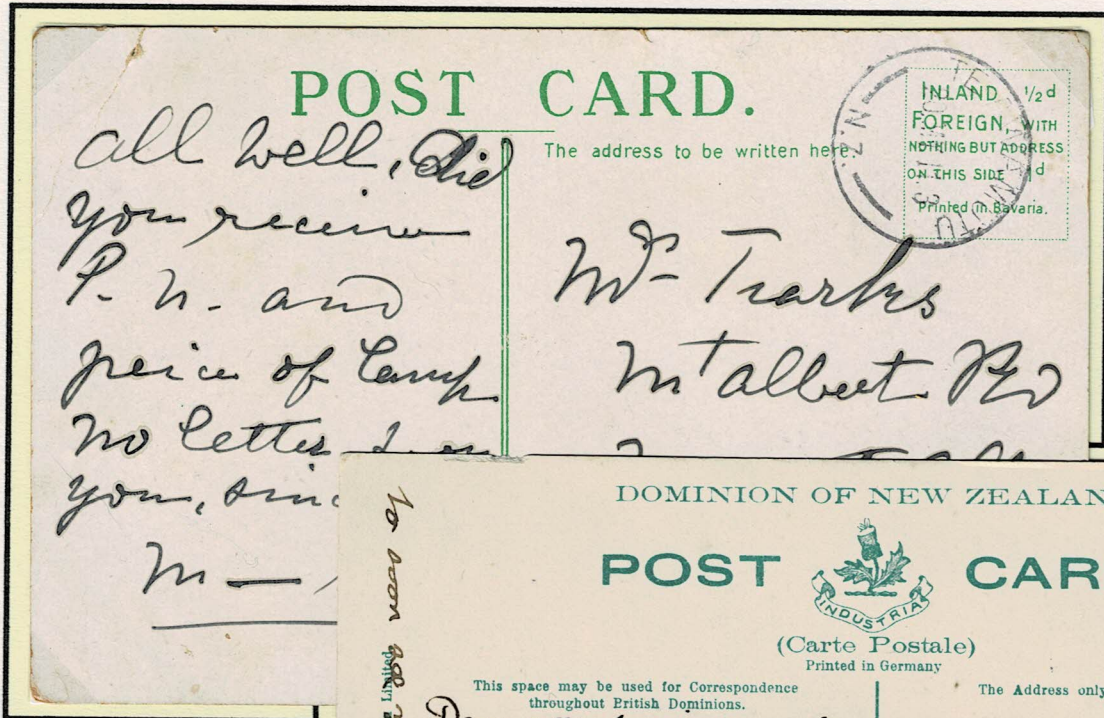 POST CARD.
The address to be written here.
INLAND ½d
FOREIGN, WITH
NOTHING BUT ADDRESS
ON THIS SIDE 1d
Printed in Bavaria.
N.Z.
all well, Did
you receive
P. N. and
peice of Lamp
No letter
you, sinc
M —
Mr Tiarks
Mt albert Rd
DOMINION OF NEW ZEALAN
POST CAR
INDUSTRIA
(Carte Postale)
Printed in Germany
This space may be used for Correspondence
throughout British Dominions.
The Address only
Limited